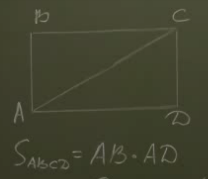 B C
A D
S_ABCD = AB · AD